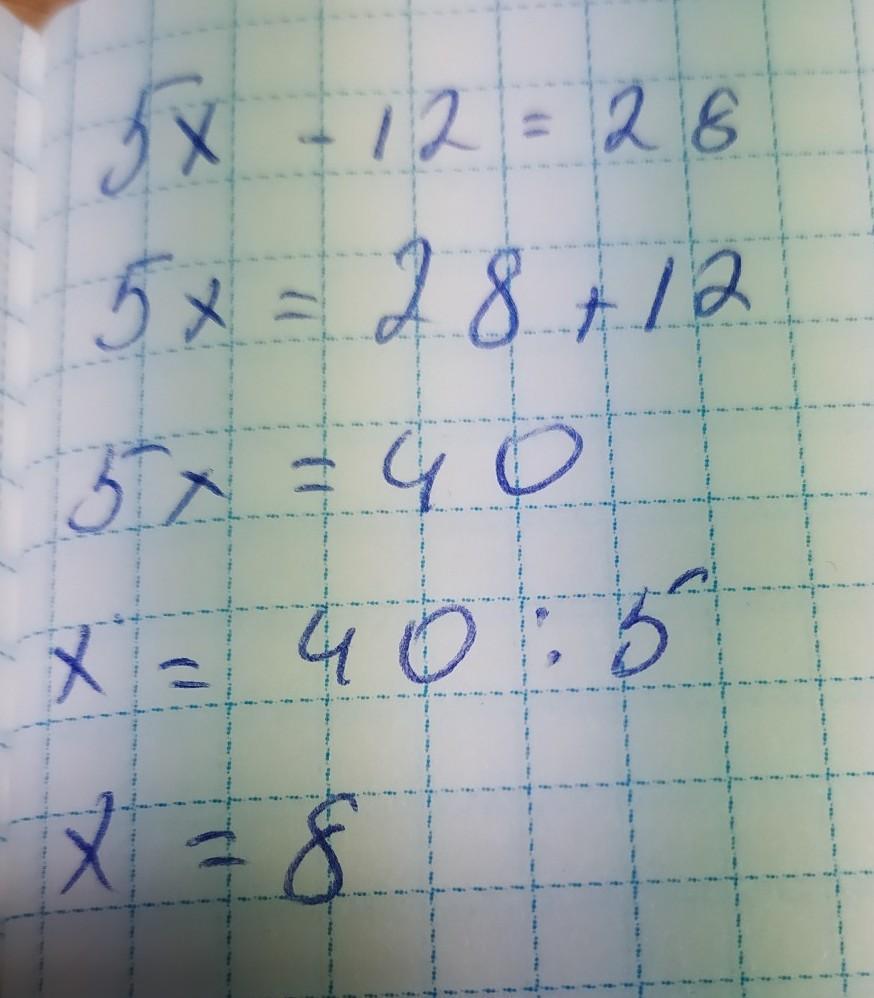 5x - 12 = 28
5x = 28 + 12
5x = 40
x = 40 : 5
x = 8